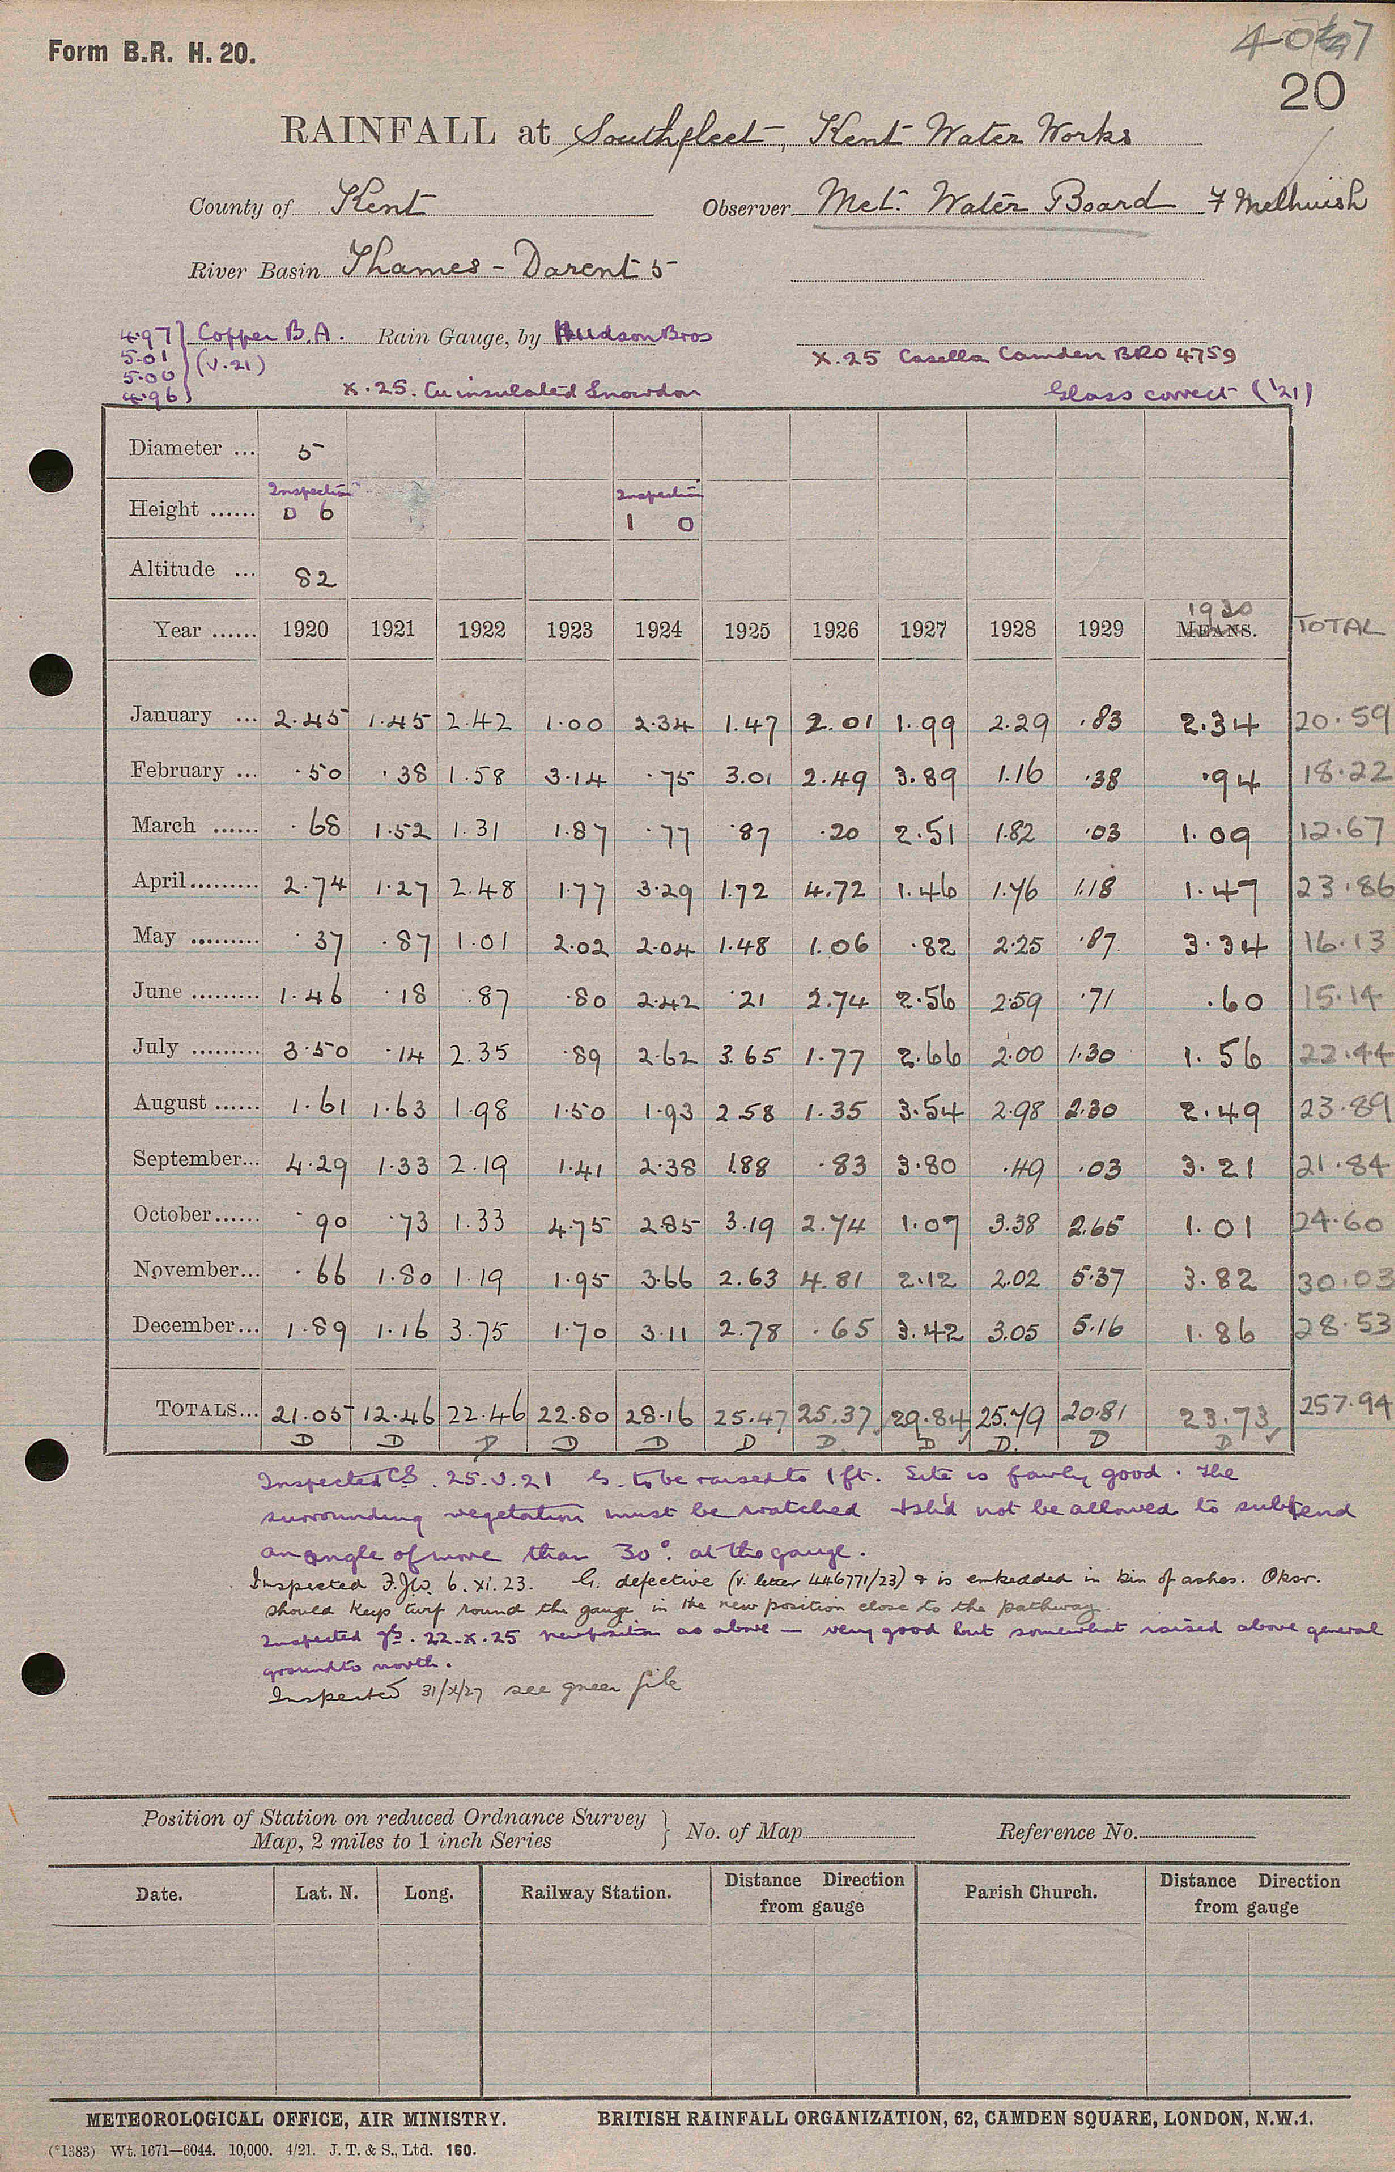 Form B.R. H. 20.
20
RAINFALL at Southfleet, Kent Water Works
County of Kent Observer Met. Water Board F Melhuish
River Basin Thames - Darent 5
4.97 Copper B.A. Rain Gauge, by Hudson Bros
5.01 (V.21)
5.00
4.96
X.25 Casella Camden BRO 4759
X.25. Cu insulated Snowdon Glass correct ('21)
Diameter ... 5
Inspection Inspection
Height ...... 0 6 1 0
Altitude ... 82
Year ...... 1920 1921 1922 1923 1924 1925 1926 1927 1928 1929 1930 MEANS. TOTAL
January ... 2.45 1.45 2.42 1.00 2.34 1.47 2.01 1.99 2.29 .83 2.34 20.59
February ... .50 .38 1.58 3.14 .75 3.01 2.49 3.89 1.16 .38 .94 18.22
March ...... .68 1.52 1.31 1.87 .77 .87 .20 2.51 1.82 .03 1.09 12.67
April......... 2.74 1.27 2.48 1.77 3.29 1.72 4.72 1.46 1.76 1.18 1.47 23.86
May ......... .37 .87 1.01 2.02 2.04 1.48 1.06 .82 2.25 .87 3.34 16.13
June ......... 1.46 .18 .87 .80 2.42 .21 2.74 2.56 2.59 .71 .60 15.14
July ......... 3.50 .14 2.35 .89 2.62 3.65 1.77 2.66 2.00 1.30 1.56 22.44
August ...... 1.61 1.63 1.98 1.50 1.93 2.58 1.35 3.54 2.98 2.30 2.49 23.89
September... 4.29 1.33 2.19 1.41 2.38 1.88 .83 3.80 .49 .03 3.21 21.84
October...... .90 .73 1.33 4.75 2.85 3.19 2.74 1.07 3.38 2.65 1.01 24.60
November... .66 1.80 1.19 1.95 3.66 2.63 4.81 2.12 2.02 5.37 3.82 30.03
December... 1.89 1.16 3.75 1.70 3.11 2.78 .65 3.42 3.05 5.16 1.86 28.53
TOTALS... 21.05 12.46 22.46 22.80 28.16 25.47 25.37 29.84 25.79 20.81 23.73 257.94
D D D D D D D. D D. D D
Inspected CS. 25.V.21 G. to be raised to 1 ft. Site is fairly good. The
surrounding vegetation must be watched & sh'd not be allowed to subtend
an angle of more than 30° at the gauge.
Inspected F.J.W. 6.xi.23. G. defective (v. letter 446771/23) & is embedded in bin of ashes. Obsr.
should keep turf round the gauge in the new position close to the pathway.
Inspected 22.X.25 new position as above — very good but somewhat raised above general
ground to north.
Inspected 31/X/27 see green file
Position of Station on reduced Ordnance Survey
Map, 2 miles to 1 inch Series
No. of Map Reference No.
Date. Lat. N. Long. Railway Station. Distance Direction from gauge Parish Church. Distance Direction from gauge
METEOROLOGICAL OFFICE, AIR MINISTRY. BRITISH RAINFALL ORGANIZATION, 62, CAMDEN SQUARE, LONDON, N.W.1.
(*1383) Wt. 1671—6044. 10,000. 4/21. J. T. & S., Ltd. 160.